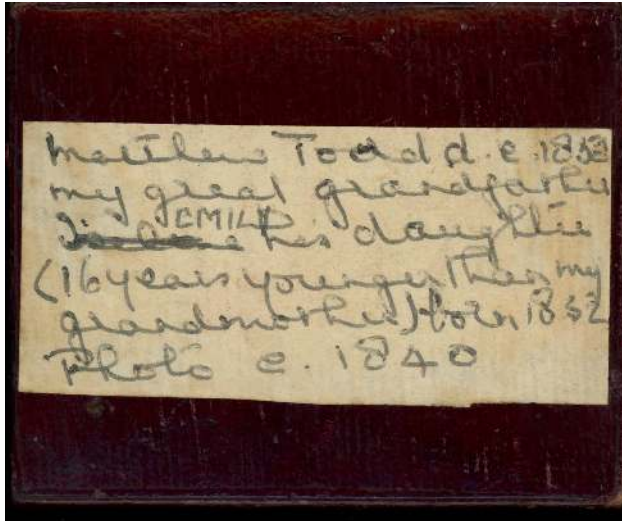 Matthew Todd d. c. 1853
my great grandfather
EMILY his daughter
(16 years younger than my
grandmother) born 1832
Photo c. 1840